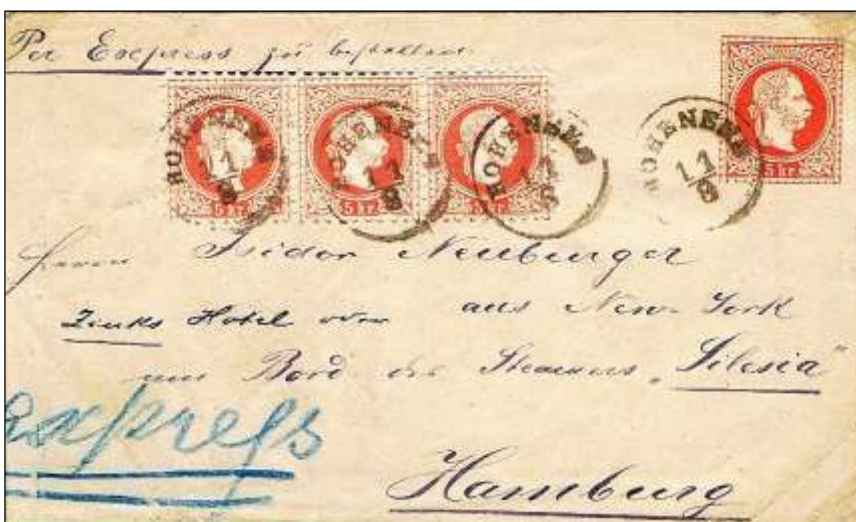 Per Express zu bestellen
HOHENEMS 11/8 HOHENEMS 11/8 HOHENEMS HOHENEMS 11/8
5 kr. 5 kr. 5 kr.
Herrn Isidor Neuburger
Zinks Hotel oder aus New-York
am Bord des Steamers „Silesia“
Express
Hamburg